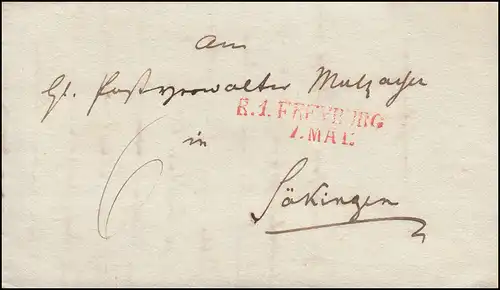 An
Hl. Postverwalter Mutzacher
R.1. FREYBURG
7. MAI.
in
6
Säkingen